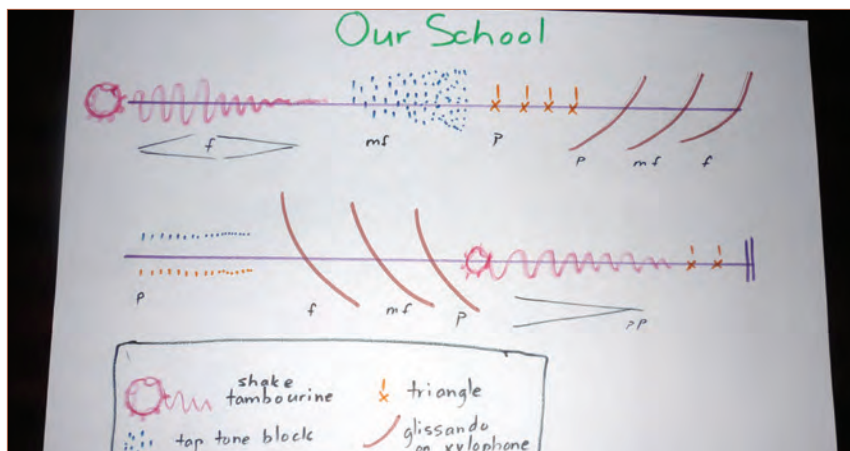 Our School
f mf p p mf f
p f mf p pp
shake
tambourine
triangle
tap tone block
glissando
on xylophone